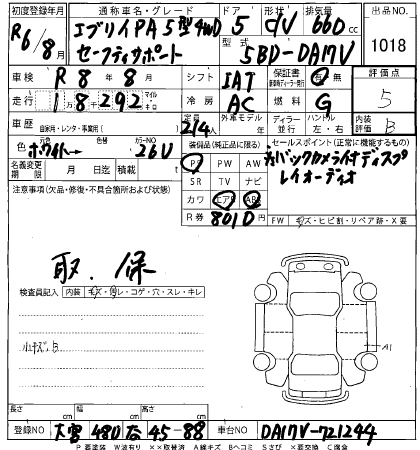 初度登録年月 通称車名・グレード ドア 形状 排気量 出品NO.
R6/8月 エブリイPA 5型 4WD セーフティサポート 5 CV 660cc 1018
型式 5BD-DA17V
車検 R 8年 8月 シフト IAT 保証書 有 無 評価点
走行 18292 マイル キロ 冷房 AC 燃料 G 5
車歴 自家用・レンタ・事業用( ) 定員 2/4人 外車モデル ディーラー 並行 ハンドル 左・右 内装評価 B
色 ホワイト→ カラーNO 26U 装備品(純正品に限る) セールスポイント(正常に機能するもの)
名義変更期限 月 日迄 積載 t PS PW AW バックカメラ付ディスプレイオーディオ
注意事項(欠品・修復・不具合箇所および状態) SR TV ナビ
カワ エアB ABS
R券 8010円 FW キズ・ヒビ割・リペア跡・X要
取、保
検査員記入 内装 キズ・汚レ・コゲ・穴・スレ・キレ
小キズ、B
A1
長さ cm 幅 cm 高さ cm
登録NO 大宮 480 る 45-88 車台NO DA17V-721244
P要塗装 W波有り ××取替済 A線キズ Bヘコミ Sさび ×要交換 C腐食